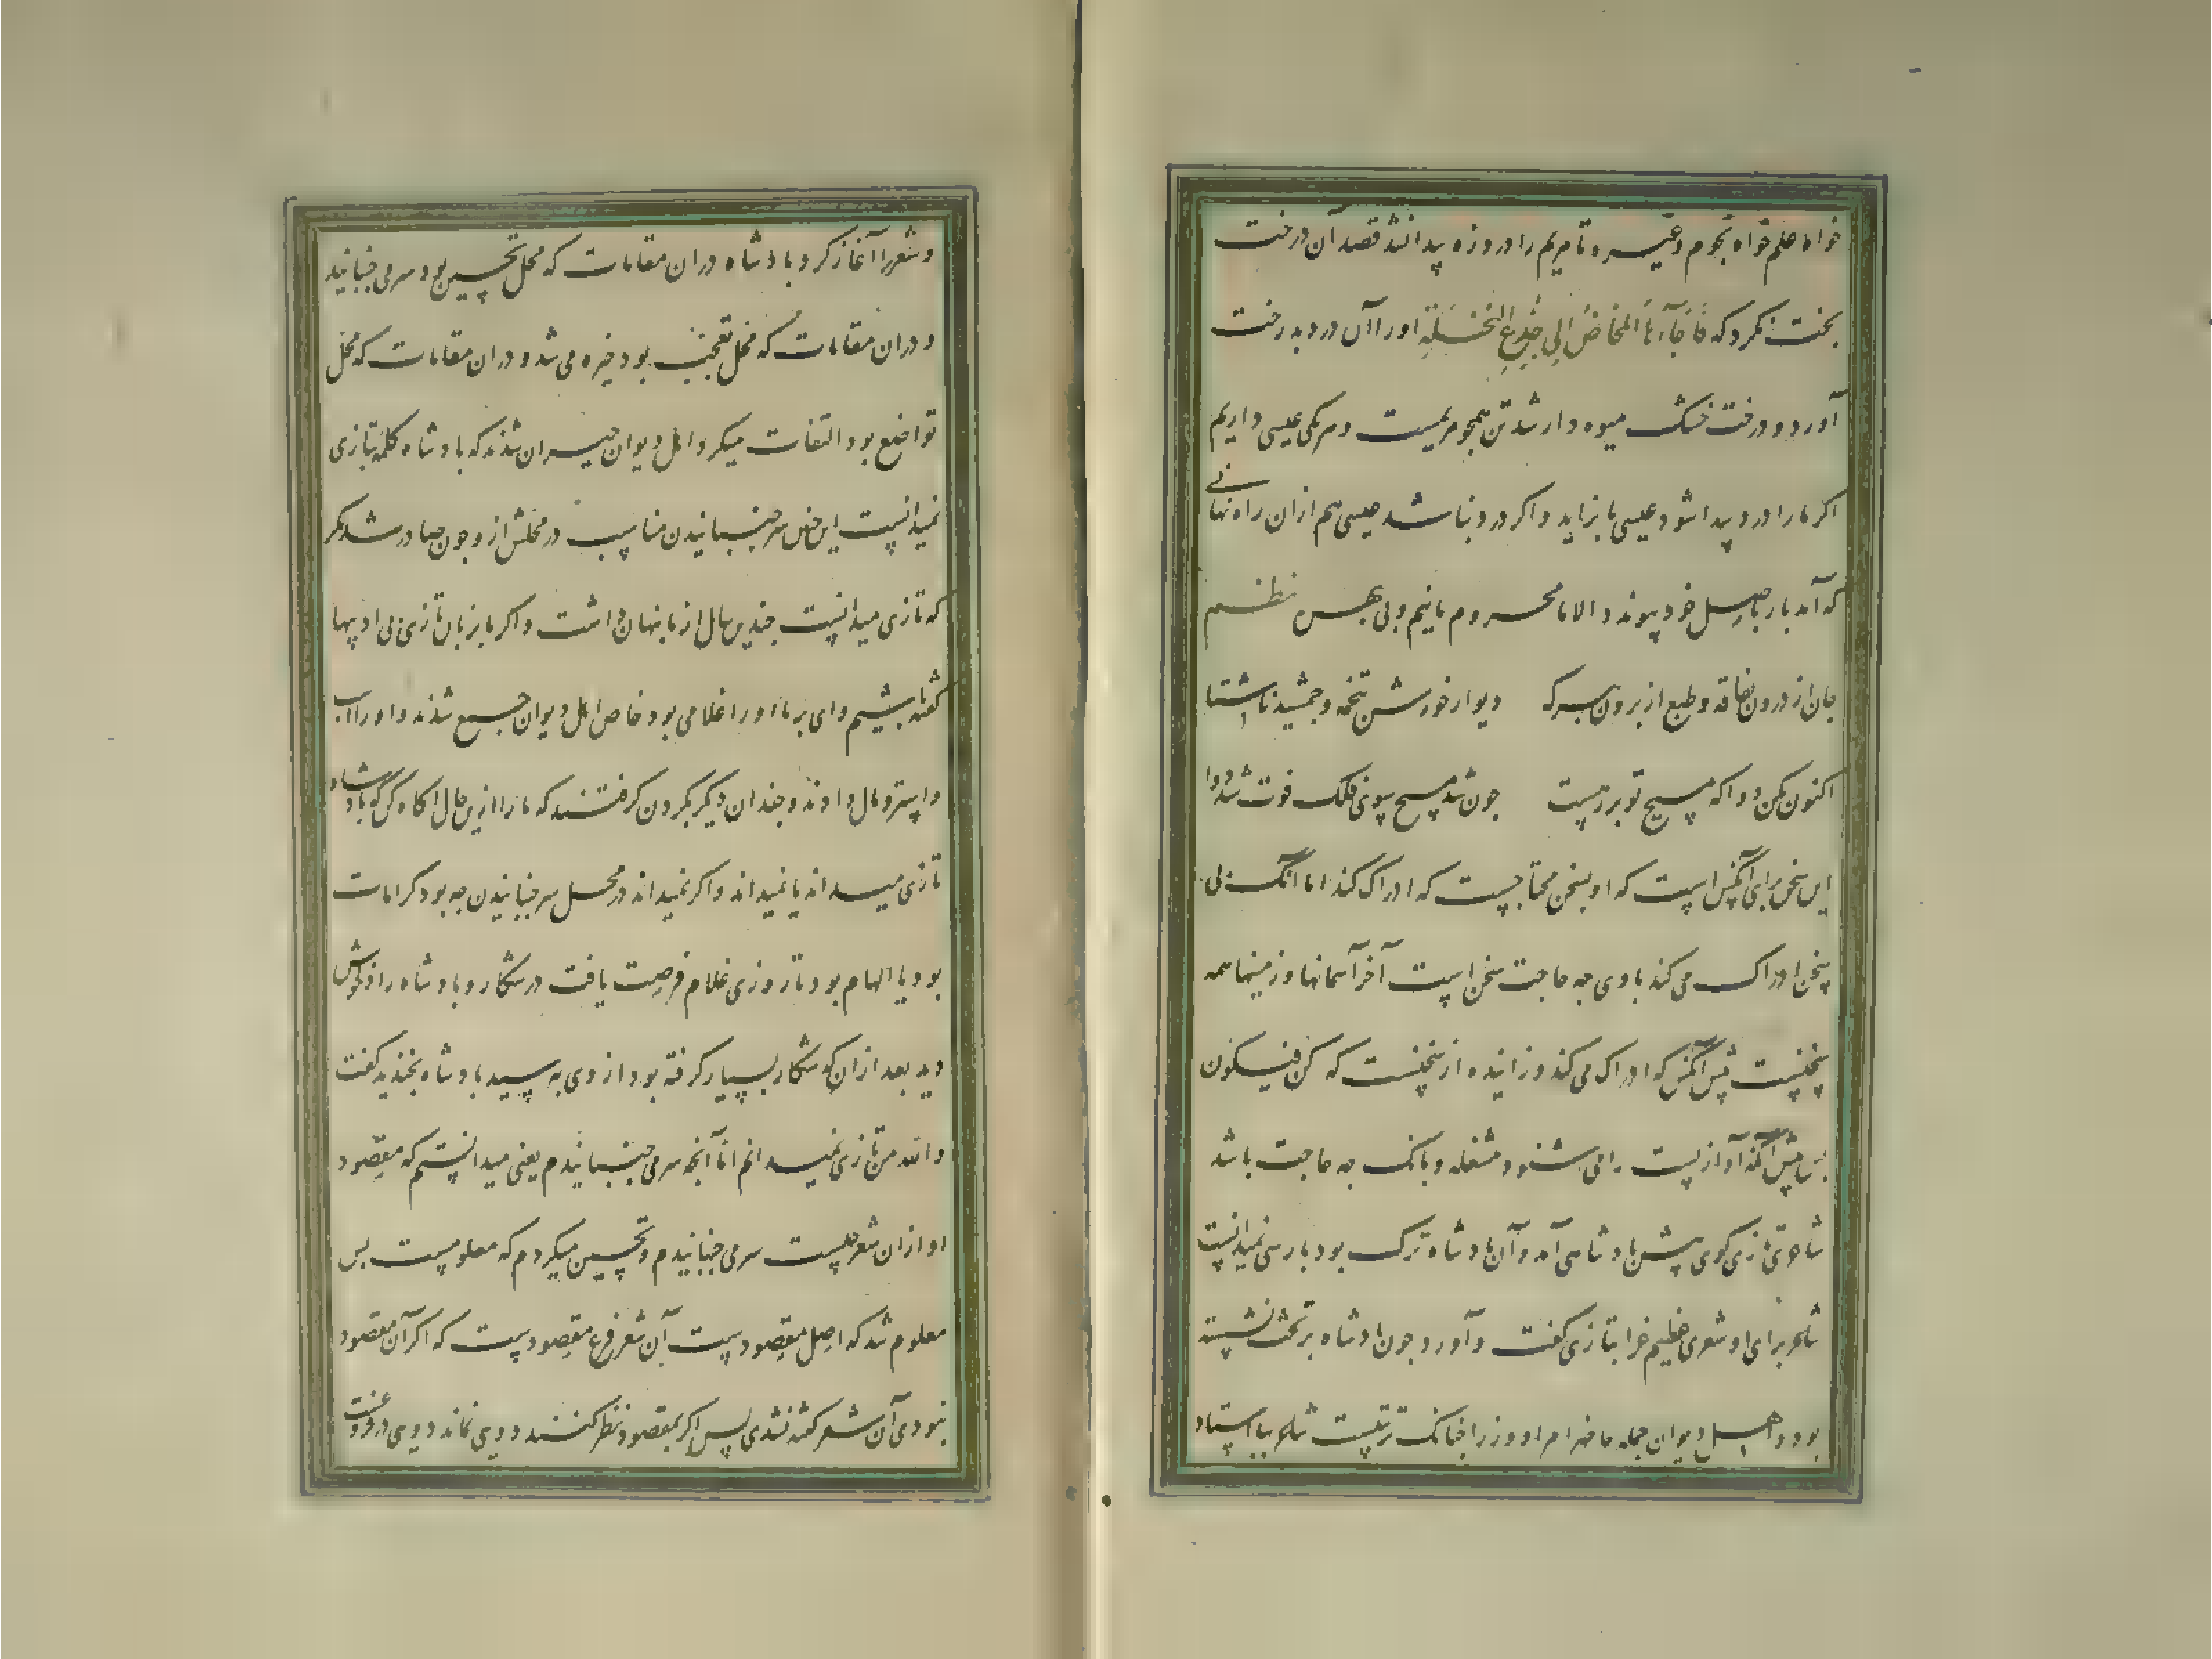 خواه علم خواه نجوم و غیره تا مریم را درد زه پیدا نشد قصد آن درخت
بخت نکرد که فَاَجَآءَهَا المَخَاضُ اِلی جِذعِ النَّخلَةِ او را آن درد بدرخت
آورد و درخت خشک میوه دار شد تن همچو مریمست و هر یکی عیسی داریم
اگر ما را درد پیدا شود عیسی ما بزاید و اگر درد نباشد عیسی هم ازان راه نهانی
که آمد باز باصل خود پیوندد الا ما محروم مانیم و بی بهره نظم
جان از درون بفاقه و طبع از برون ببرک دیو از خورش بتخمه و جمشید ناشتا
اکنون بکن دوا که مسیح تو بر زمیست چون شد مسیح سوی فلک فوت شد دوا
این سخن برای آنکس است که او بسخن محتاجست که ادراک کند اما آنک بی
سخن ادراک می کند با وی چه حاجت سخن است آخر آسمانها و زمینها همه
سخنست پیش آنکس که ادراک می کند و زاییده از سخنست که کن فیکون
پس پیش آنکه آواز پست را می شنود مشغله و بانک چه حاجت باشد
شاعری تازی کوی پیش پادشاهی آمد و آن پادشاه ترک بود پارسی نمیدانست
شاعر برای او شعری عظیم غرا بتازی کفت و آورد چون پادشاه بر تخت نشسته
بود و اهل دیوان جمله حاضر امرا و وزرا چنانک ترتیبست شاعر بپا استاد
و شعر را آغاز کرد پادشاه دران مقامات که محل تحسین بود سر می جنبانید
و دران مقامات که محل تعجب بود خیره می شد و دران مقامات که محل
تواضع بود التفات میکرد اهل دیوان حیران شدند که پادشاه کلمه بتازی
نمیدانست این چنین سر جنبانیدن مناسب در مجلس ازو چون صادر شد مکر
که تازی میدانست چندین سال از ما پنهان داشت و اگر ما بزبان تازی بی ادبیها
کفته باشیم وای بر ما او را غلامی بود خاص اهل دیوان جمع شدند و او را اسب
و استر و مال دادند و چندان دیگر بگردن کرفتند که ما را ازین حال اکاه کن که پادشاه
تازی میداند یا نمیداند و اگر نمیداند در محل سر جنبانیدن چه بود کرامات
بود یا الهام بود تا روزی غلام فرصت یافت در شکار و پادشاه را دلخوش
دید بعد ازان که شکار بسیار کرفته بود از وی بپرسید پادشاه بخندید کفت
والله من تازی نمیدانم اما آنچه سر می جنبانیدم یعنی میدانستم که مقصود
او ازان شعر چیست سر می جنبانیدم و تحسین میکردم که معلومست پس
معلوم شد که اصل مقصودست آن شعر فرع مقصودست که اگر آن مقصود
نبودی آن شعر کفته نشدی پس اگر بمقصود نظر کنند دوی نماند دوی در فروعست